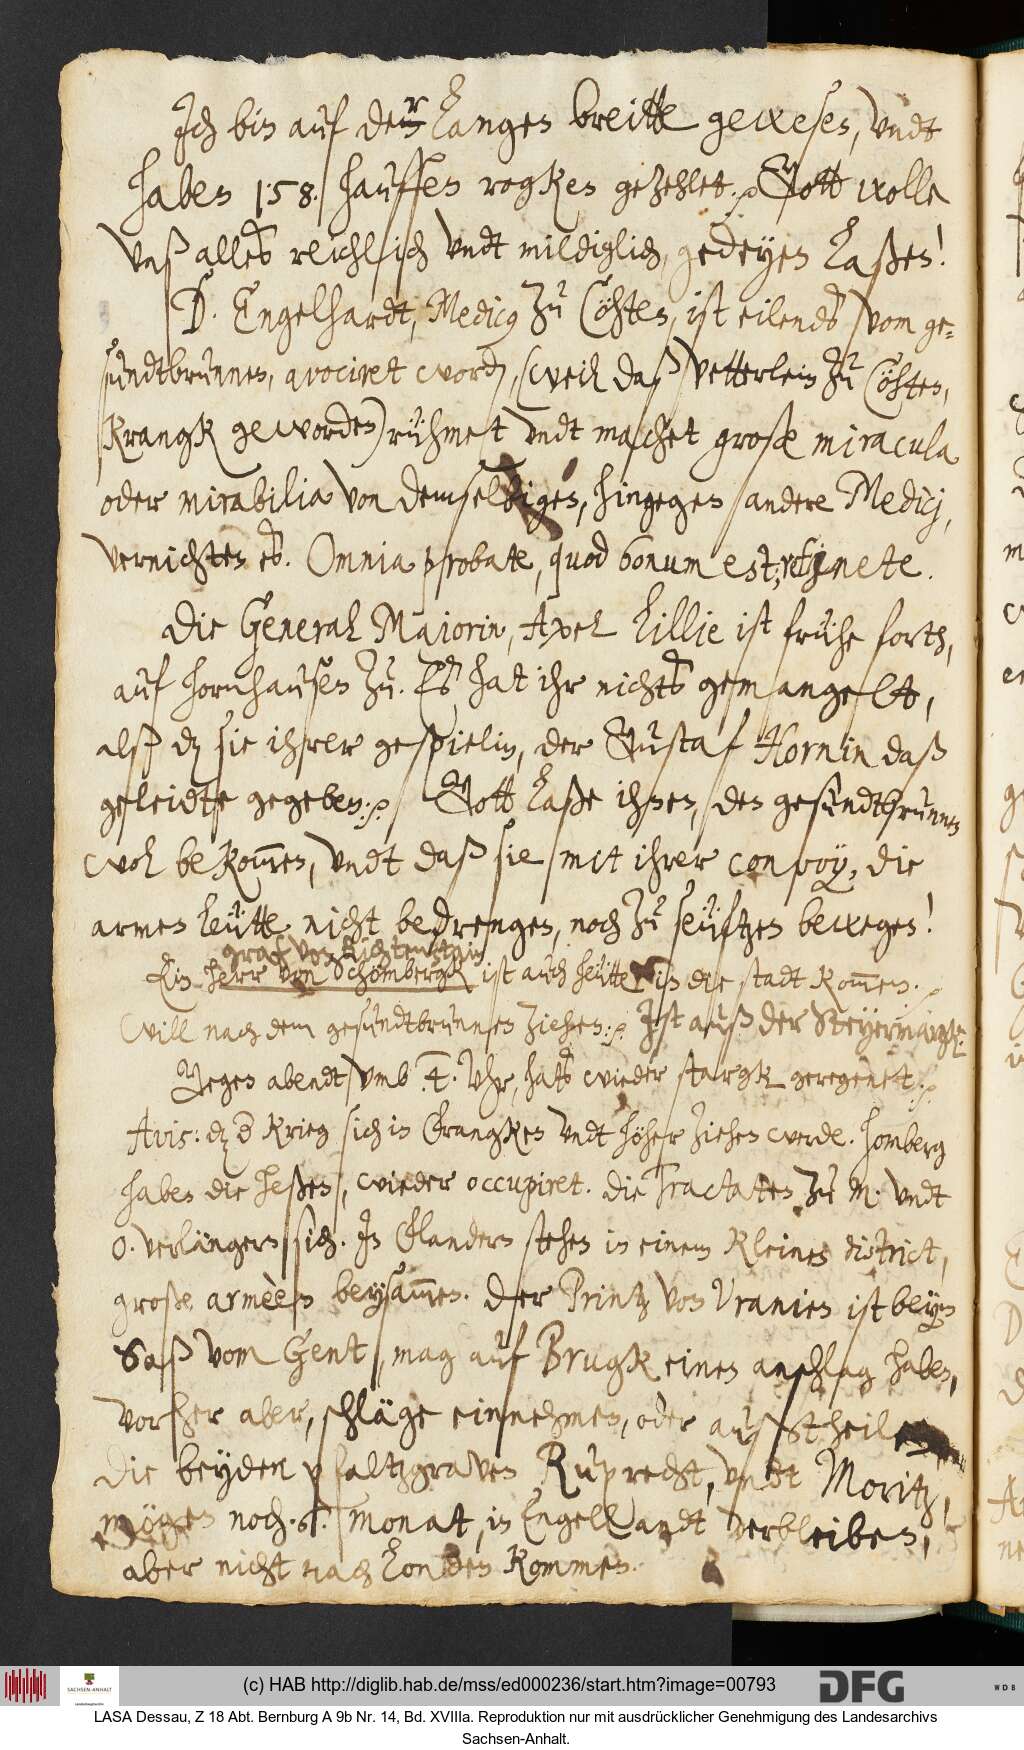 Ich bin auf der Langen breitte gewesen, vndt
haben 158. hauffen rogken gezehlet. Gott wolle
vnß alles reichlich vndt mildiglich, gedeyen laßen!
D. Engelhardt, Medicus zu Cöhten, ist eilends vom ge-
sundtbrunnen, avociret word, (weil daß Vetterlein zu Cöhten,
Krangk geworden) rühmet vndt machet große miracula
oder mirabilia von demselbigen, hingegen andere Medicj,
vernichten es. Omnia probate, quod bonum est, retinete.
Die General Majorin, Axel Lillie ist frühe forth,
auf Hornhausen zu. Es hat ihr nichts gemangelt,
alß dz sie ihrer gespielin, der Gustaf Hornin daß
geleidte gegeben. Gott laße ihnen, den gesundtbrunnen
wol bekom̄en, vndt daß sie mit ihrer convoy, die
armen leütte nicht bedrengen, noch zu seüftzen bewegen!
graf von Lichtenstein
Ein herr von Schombergk ist auch heütte in die stadt kom̄en.
Will nach dem gesundtbrunnen ziehen. Ist auß der Steyermargk.
Gegen abendt vmb 4. Uhr, hats wieder stargk geregenett.
Avis: dz der Krieg sich in Frangken vndt höher ziehen werde. Homberg
haben die Heßen, wieder occupiret. Die Tractaten zu M. vndt
O. verlängern sich. In Flandern stehen in einem Kleinen district,
große armèen beysam̄en. Der Printz von Vranien ist beym
Saß vom Gent, mag auf Brugk einen anschlag haben,
vorher aber, schläge einnehmen, oder außtheilen
Die beyden pfaltzgraven Ruprecht, vndt Moritz,
mögen noch monat, in Engellandt verbleiben,
aber nicht nach Londen kommen.
(c) HAB http://diglib.hab.de/mss/ed000236/start.htm?image=00793
SACHSEN-ANHALT
DFG
WDB
LASA Dessau, Z 18 Abt. Bernburg A 9b Nr. 14, Bd. XVIIIa. Reproduktion nur mit ausdrücklicher Genehmigung des Landesarchivs
Sachsen-Anhalt.